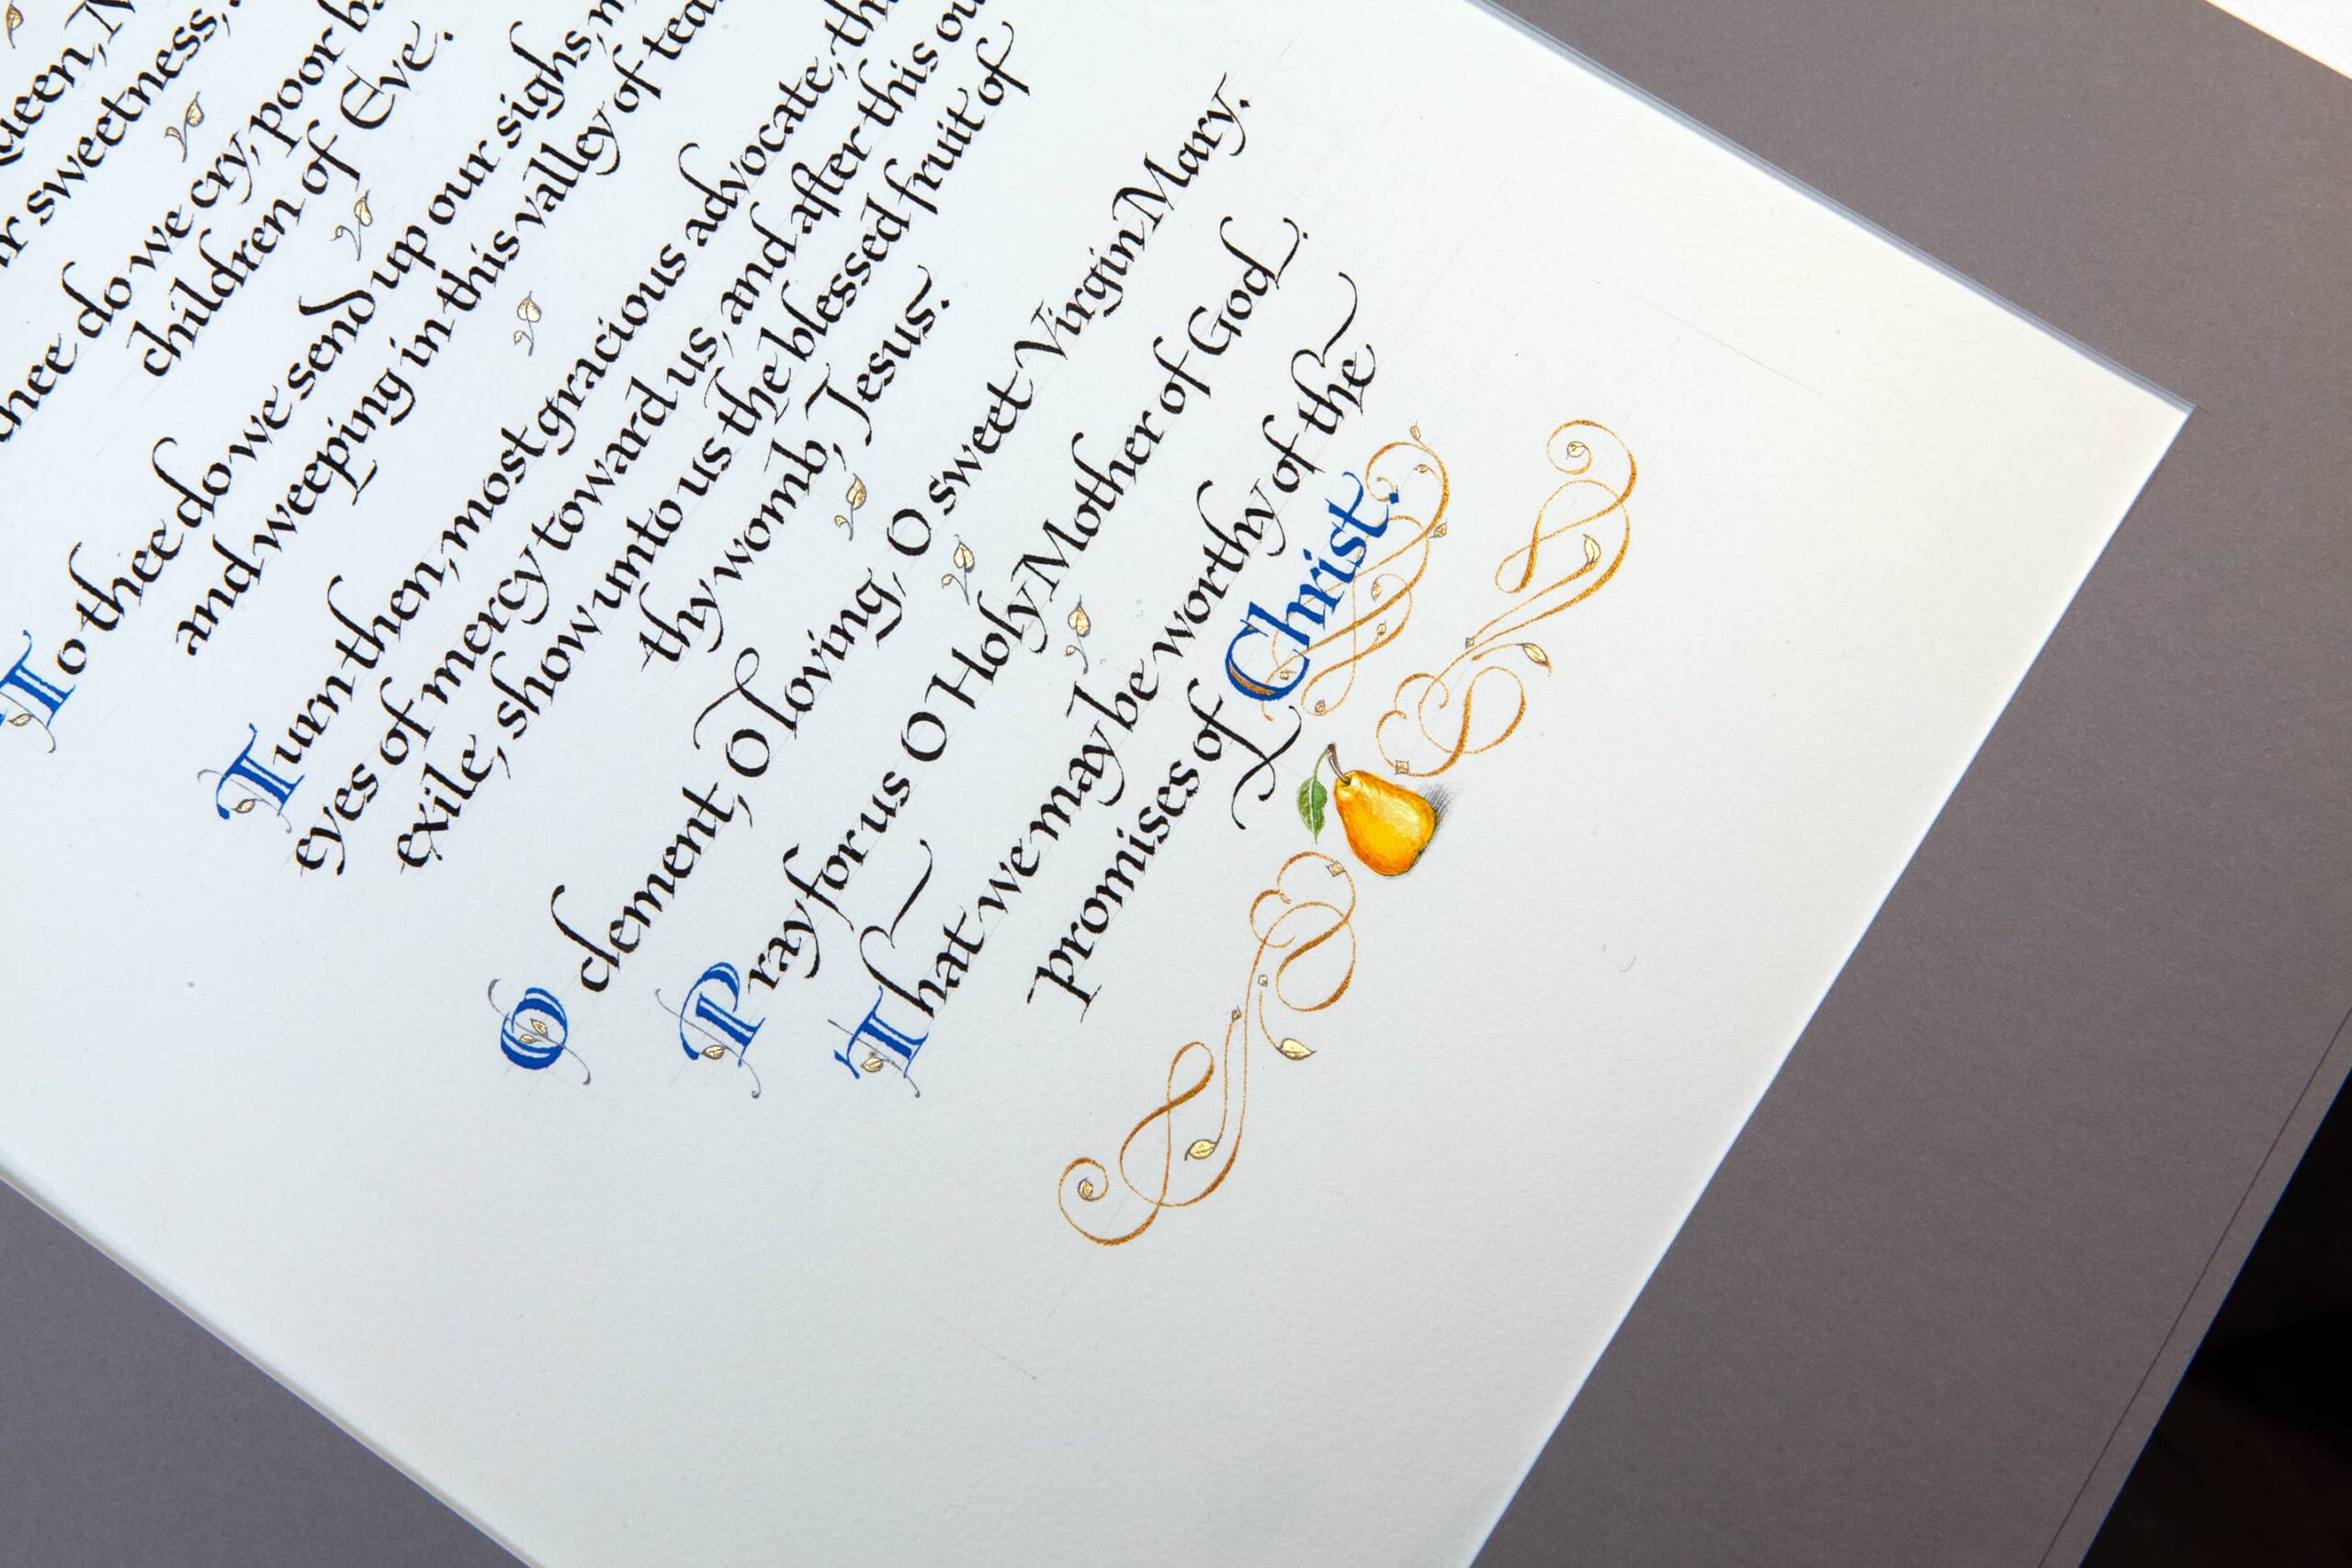 sweetness,
thee do we cry, poor
children of Eve.
To thee do we send up our sighs,
and weeping in this valley of
Turn then, most gracious advocate,
eyes of mercy toward us, and after this
exile, show unto us the blessed fruit of
thy womb, Jesus.
O clement, O loving, O sweet Virgin Mary.
Pray for us O Holy Mother of God.
That we may be worthy of the
promises of Christ.